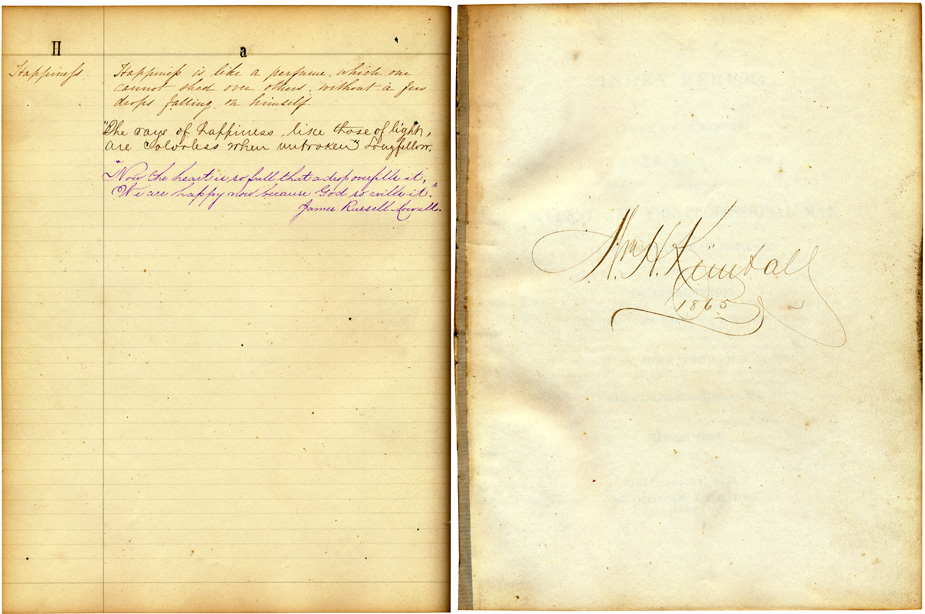 H a
Happiness Happiness is like a perfume, which one
cannot shed over others, without a few
drops falling on himself.
"The rays of happiness, like those of light,
are colorless when unbroken" Longfellow.
"Now the heart is so full that a drop overfills it,
We are happy now because God so wills it."
James Russell Lowell.
Wm H. Kimball
1865